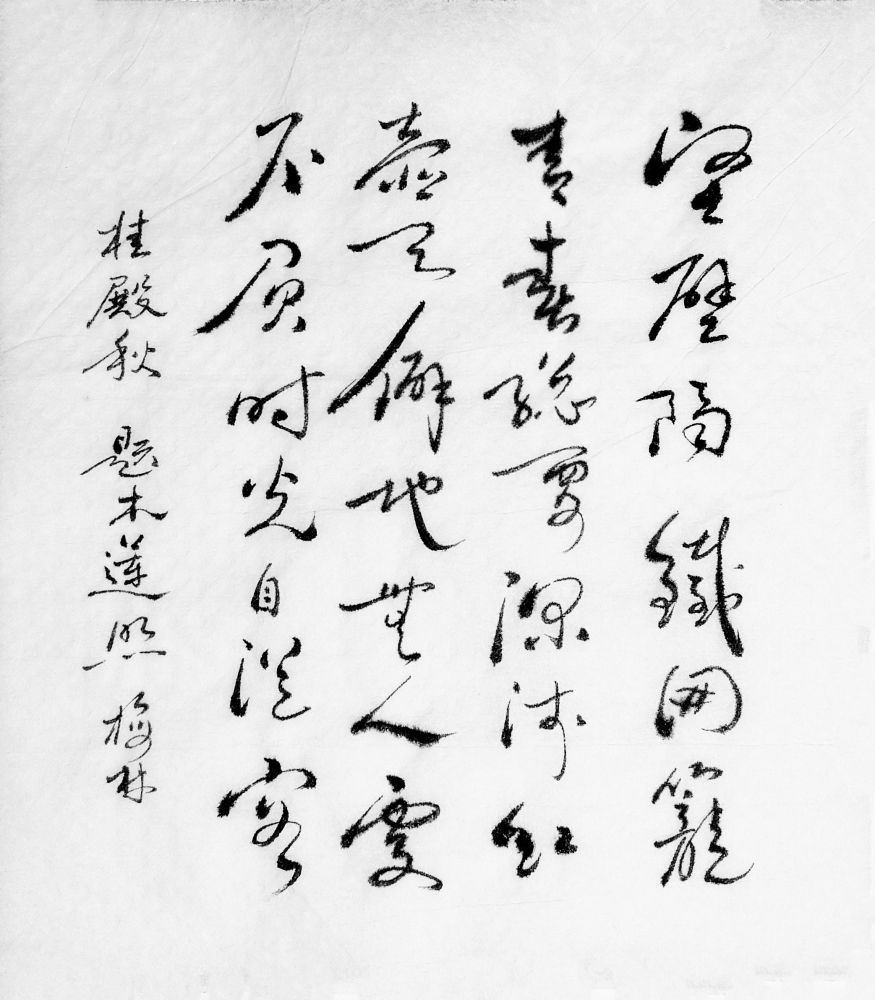 堅壁隔鐵网籠
青春總要深淺紅
壺天僻地無人處
不負时光自從容
桂殿秋 題木蓮照 梅林